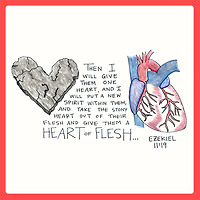 THEN I
WILL GIVE
THEM ONE
HEART, AND I
WILL PUT A NEW
SPIRIT WITHIN THEM,
AND TAKE THE STONY
HEART OUT OF THEIR
FLESH AND GIVE THEM A
HEART OF FLESH...
EZEKIEL
11:19